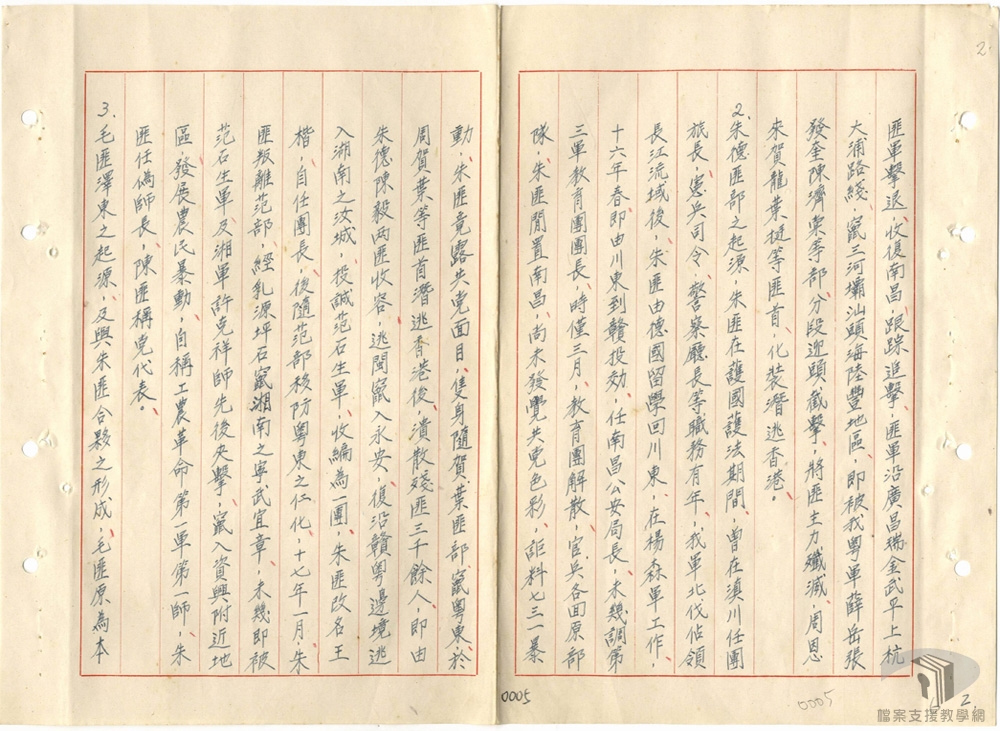 2.
匪軍擊退、收復南昌、跟踪追擊、匪軍沿廣昌瑞金武平上杭
大浦路綫、竄三河壩汕頭海陸豐地區、即被我粵軍薛岳張
發奎陳濟棠等部、分段迎頭截擊、將匪主力殲滅、周恩
來賀龍葉挺等匪首、化裝潛逃香港。
2.朱德匪部之起源、朱匪在護國護法期間、曾在滇川任團
旅長、憲兵司令、警察廳長等職務有年、我軍北伐佔領
長江流域後、朱匪由德國留學回川東、在楊森軍工作、
十六年春即由川東到贛投効、任南昌公安局長、未幾調第
三軍教育團團長、時僅三月、教育團解散、官兵各回原部
隊、朱匪閒置南昌、尚未發覺共党色彩、詎料七三一暴
動、朱匪竟露共党面目、隻身隨賀、葉匪部竄粵東、於
周賀葉等匪首潛逃香港後、潰散殘匪三千餘人、即由
朱德陳毅两匪收容、逃閩竄入永安、復沿贛粵邊境逃
入湘南之汝城、投誠范石生軍、收編為一團、朱匪改名王
楷、自任團長、後隨范部移防粵東之仁化、十七年一月、朱
匪叛離范部、經乳源坪石竄湘南之寧武宜章、未幾即被
范石生軍、及湘軍許克祥師先後夾擊、竄入資興附近地
區、發展農民暴動、自稱工農革命第一軍第一師、朱
匪任偽師長、陳匪稱党代表。
3.毛匪澤東之起源、及與朱匪合夥之形成、毛匪原為本
0005
0005
2.
檔案支援教學網